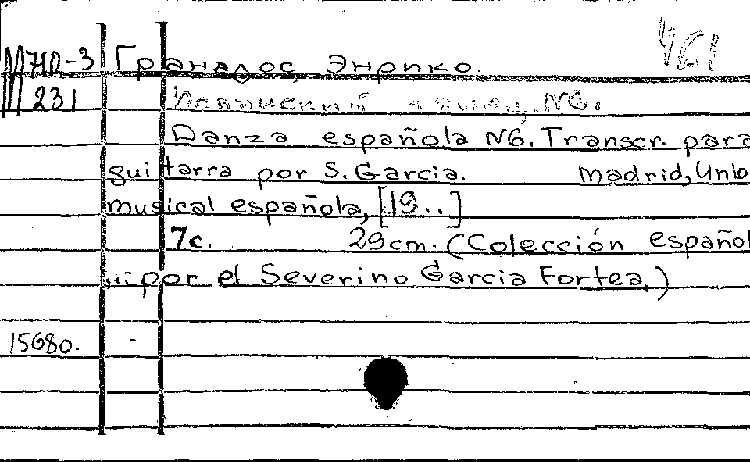 461
М710-3 Гранадос, Энрико.
М231 Испанский танец, N6.
Danza española N6. Transcr. para
guitarra por S. Garcia. Madrid, Unio
musical española, [19..]
7c. 29cm. (Colección español
por el Severino Garcia Fortea.)
15680. -